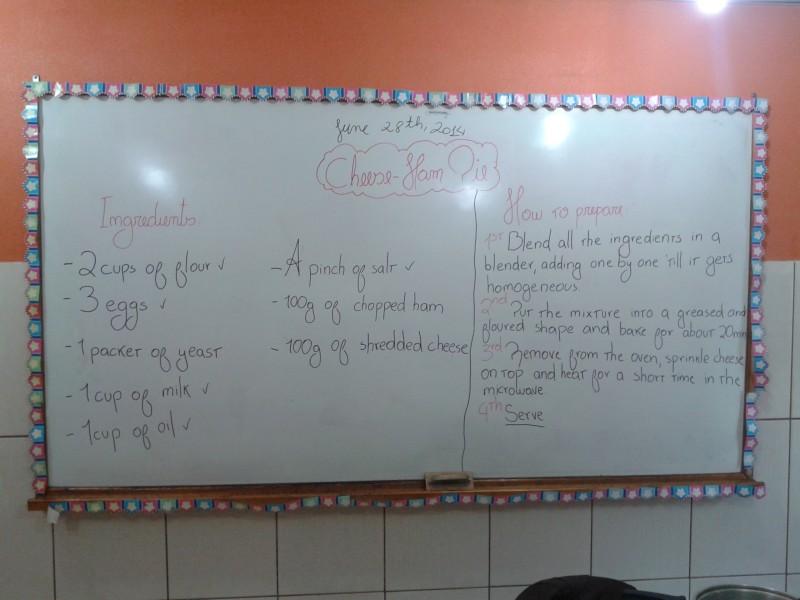 June 28th, 2014
Cheese-Ham Pie
Ingredients
- 2 cups of flour ✓
- 3 eggs ✓
- 1 packet of yeast
- 1 cup of milk ✓
- 1 cup of oil ✓
- A pinch of salt ✓
- 100g of chopped ham
- 100g of shredded cheese
How to prepare
1st Blend all the ingredients in a
blender, adding one by one 'till it gets
homogeneous.
2nd Put the mixture into a greased and
floured shape and bake for about 20min
3rd Remove from the oven, sprinkle cheese
on top and heat for a short time in the
microwave
4th Serve